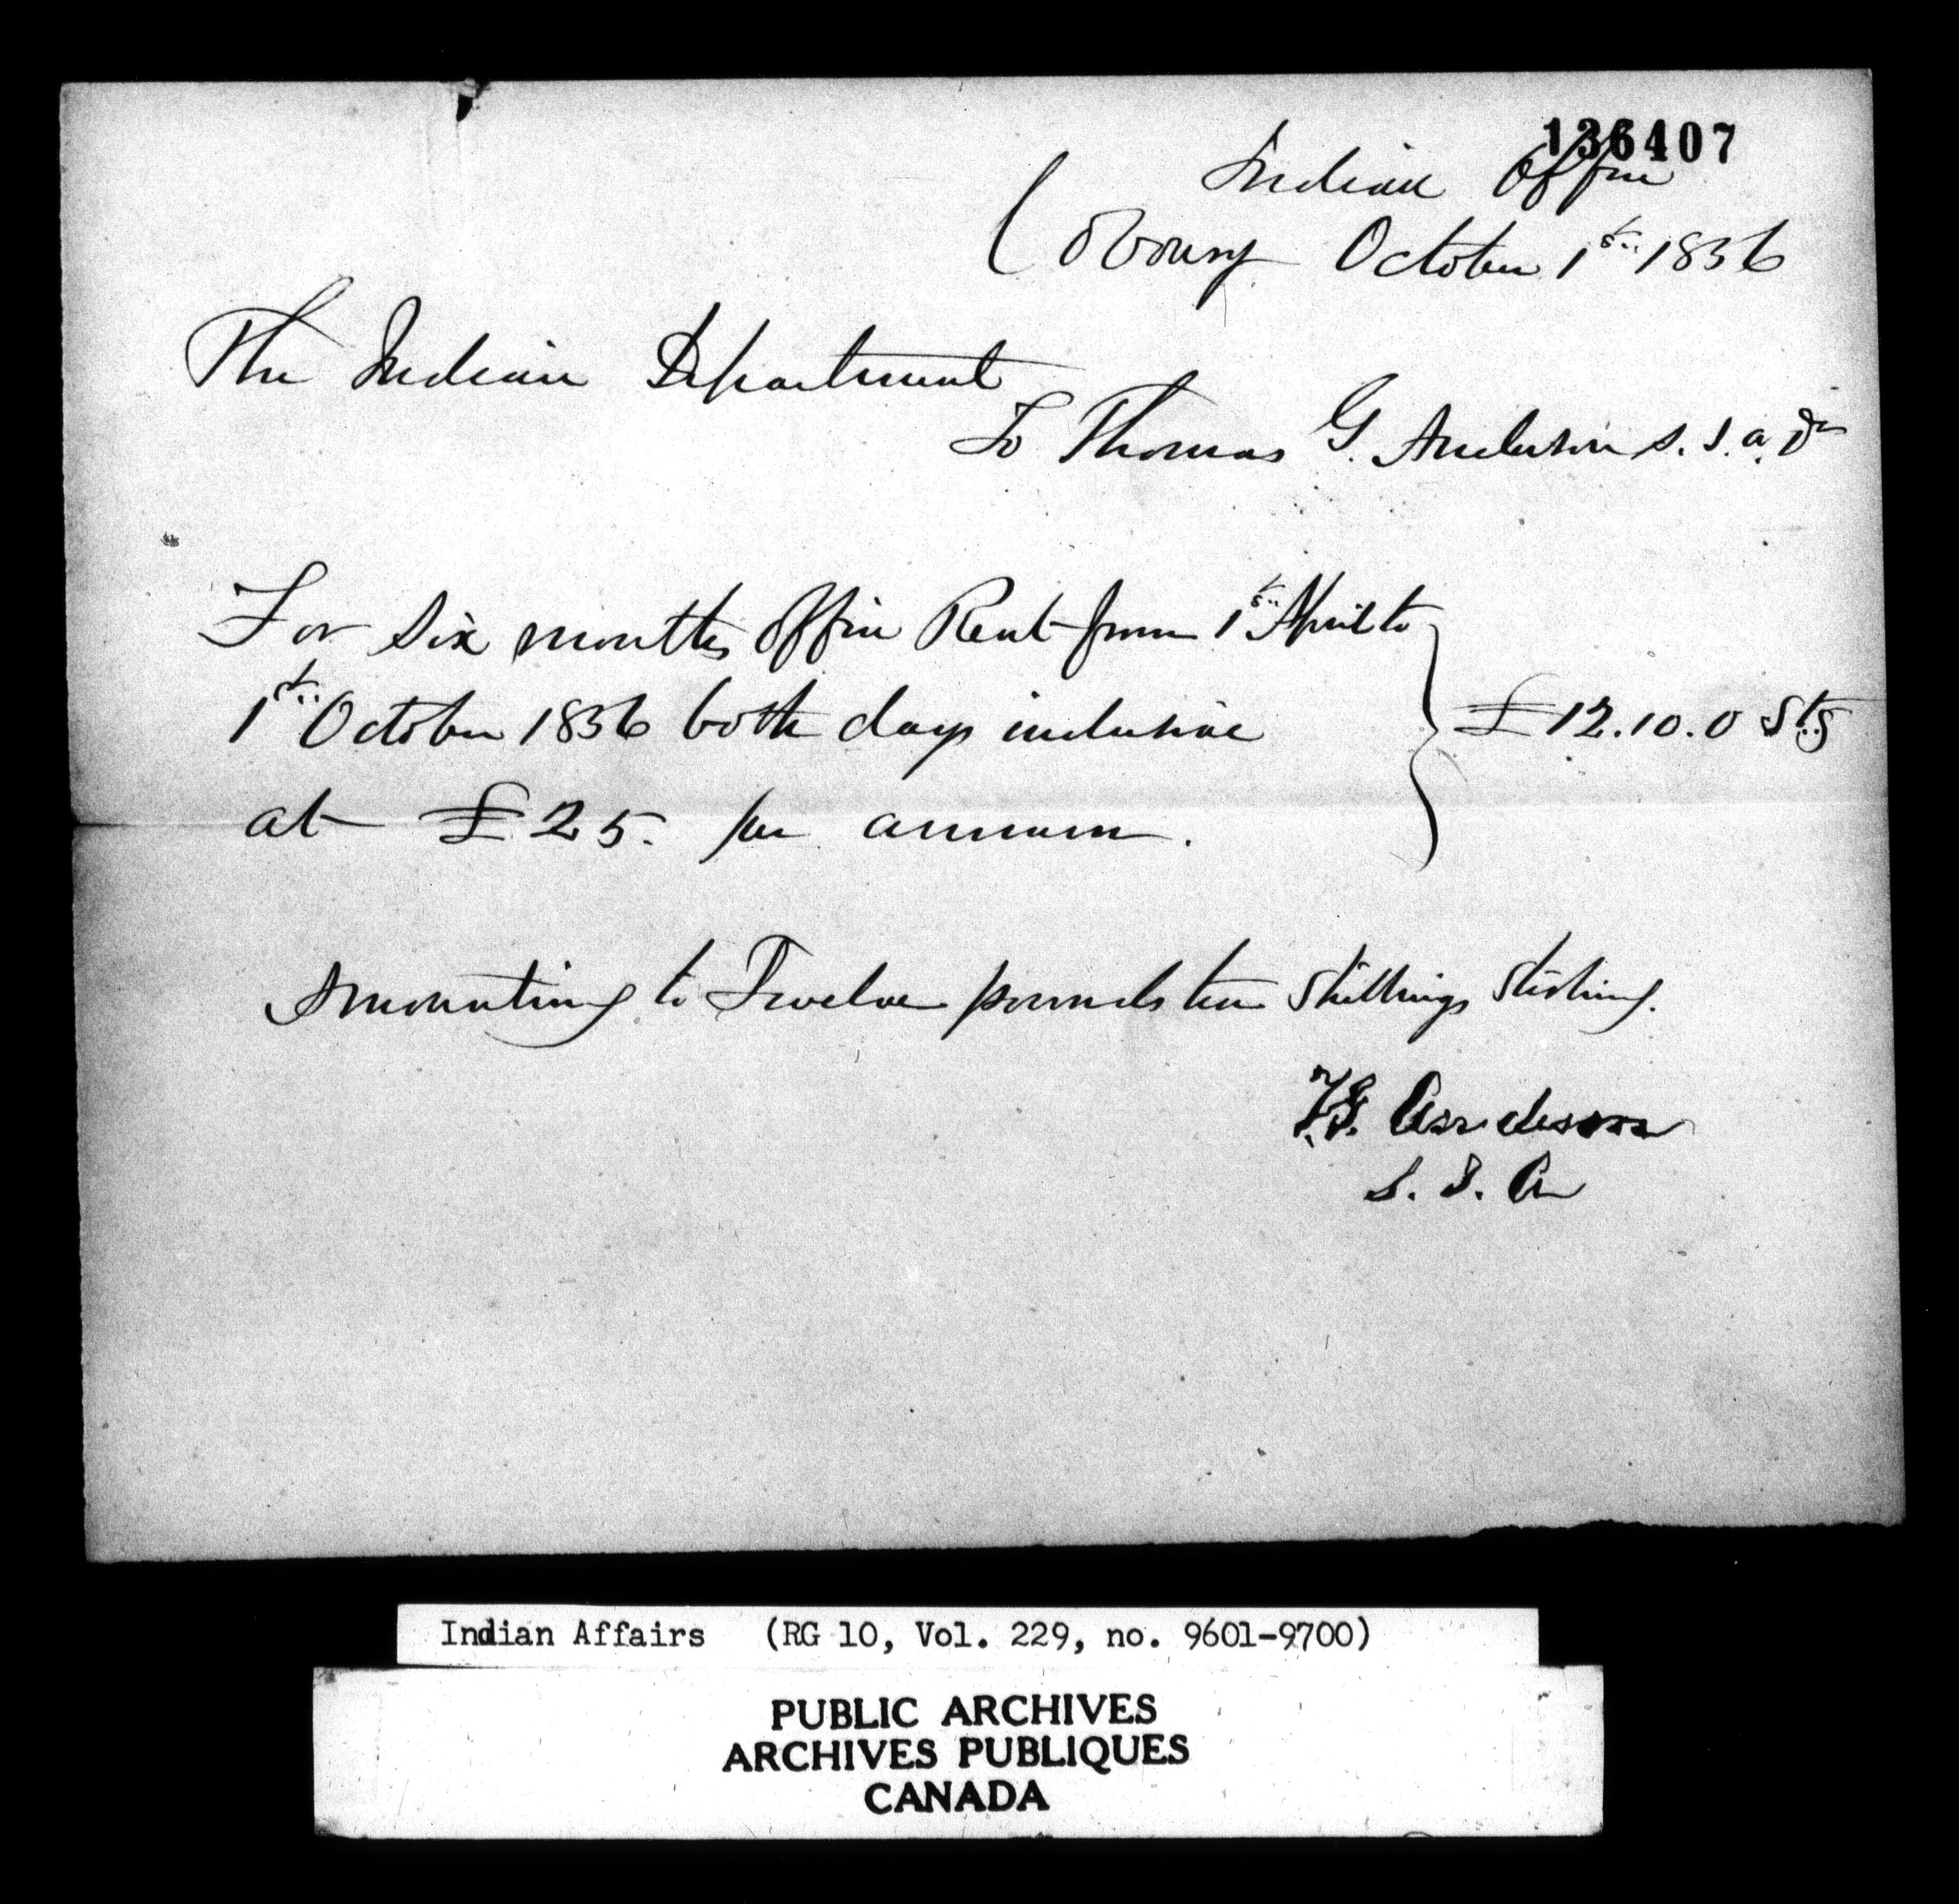 136407
Indian Office
Cobourg October 1st 1856
The Indian Department
To Thomas G. Anderson S. I. A. Dr
For Six months Office Rent from 1st April to
1st October 1856 both days inclusive
at £25. per annum.
£12.10.0 Stg
Amounting to Twelve pounds ten Shillings Sterling.
T.G. Anderson
S. I. A
Indian Affairs (RG 10, Vol. 229, no. 9601-9700)
PUBLIC ARCHIVES
ARCHIVES PUBLIQUES
CANADA